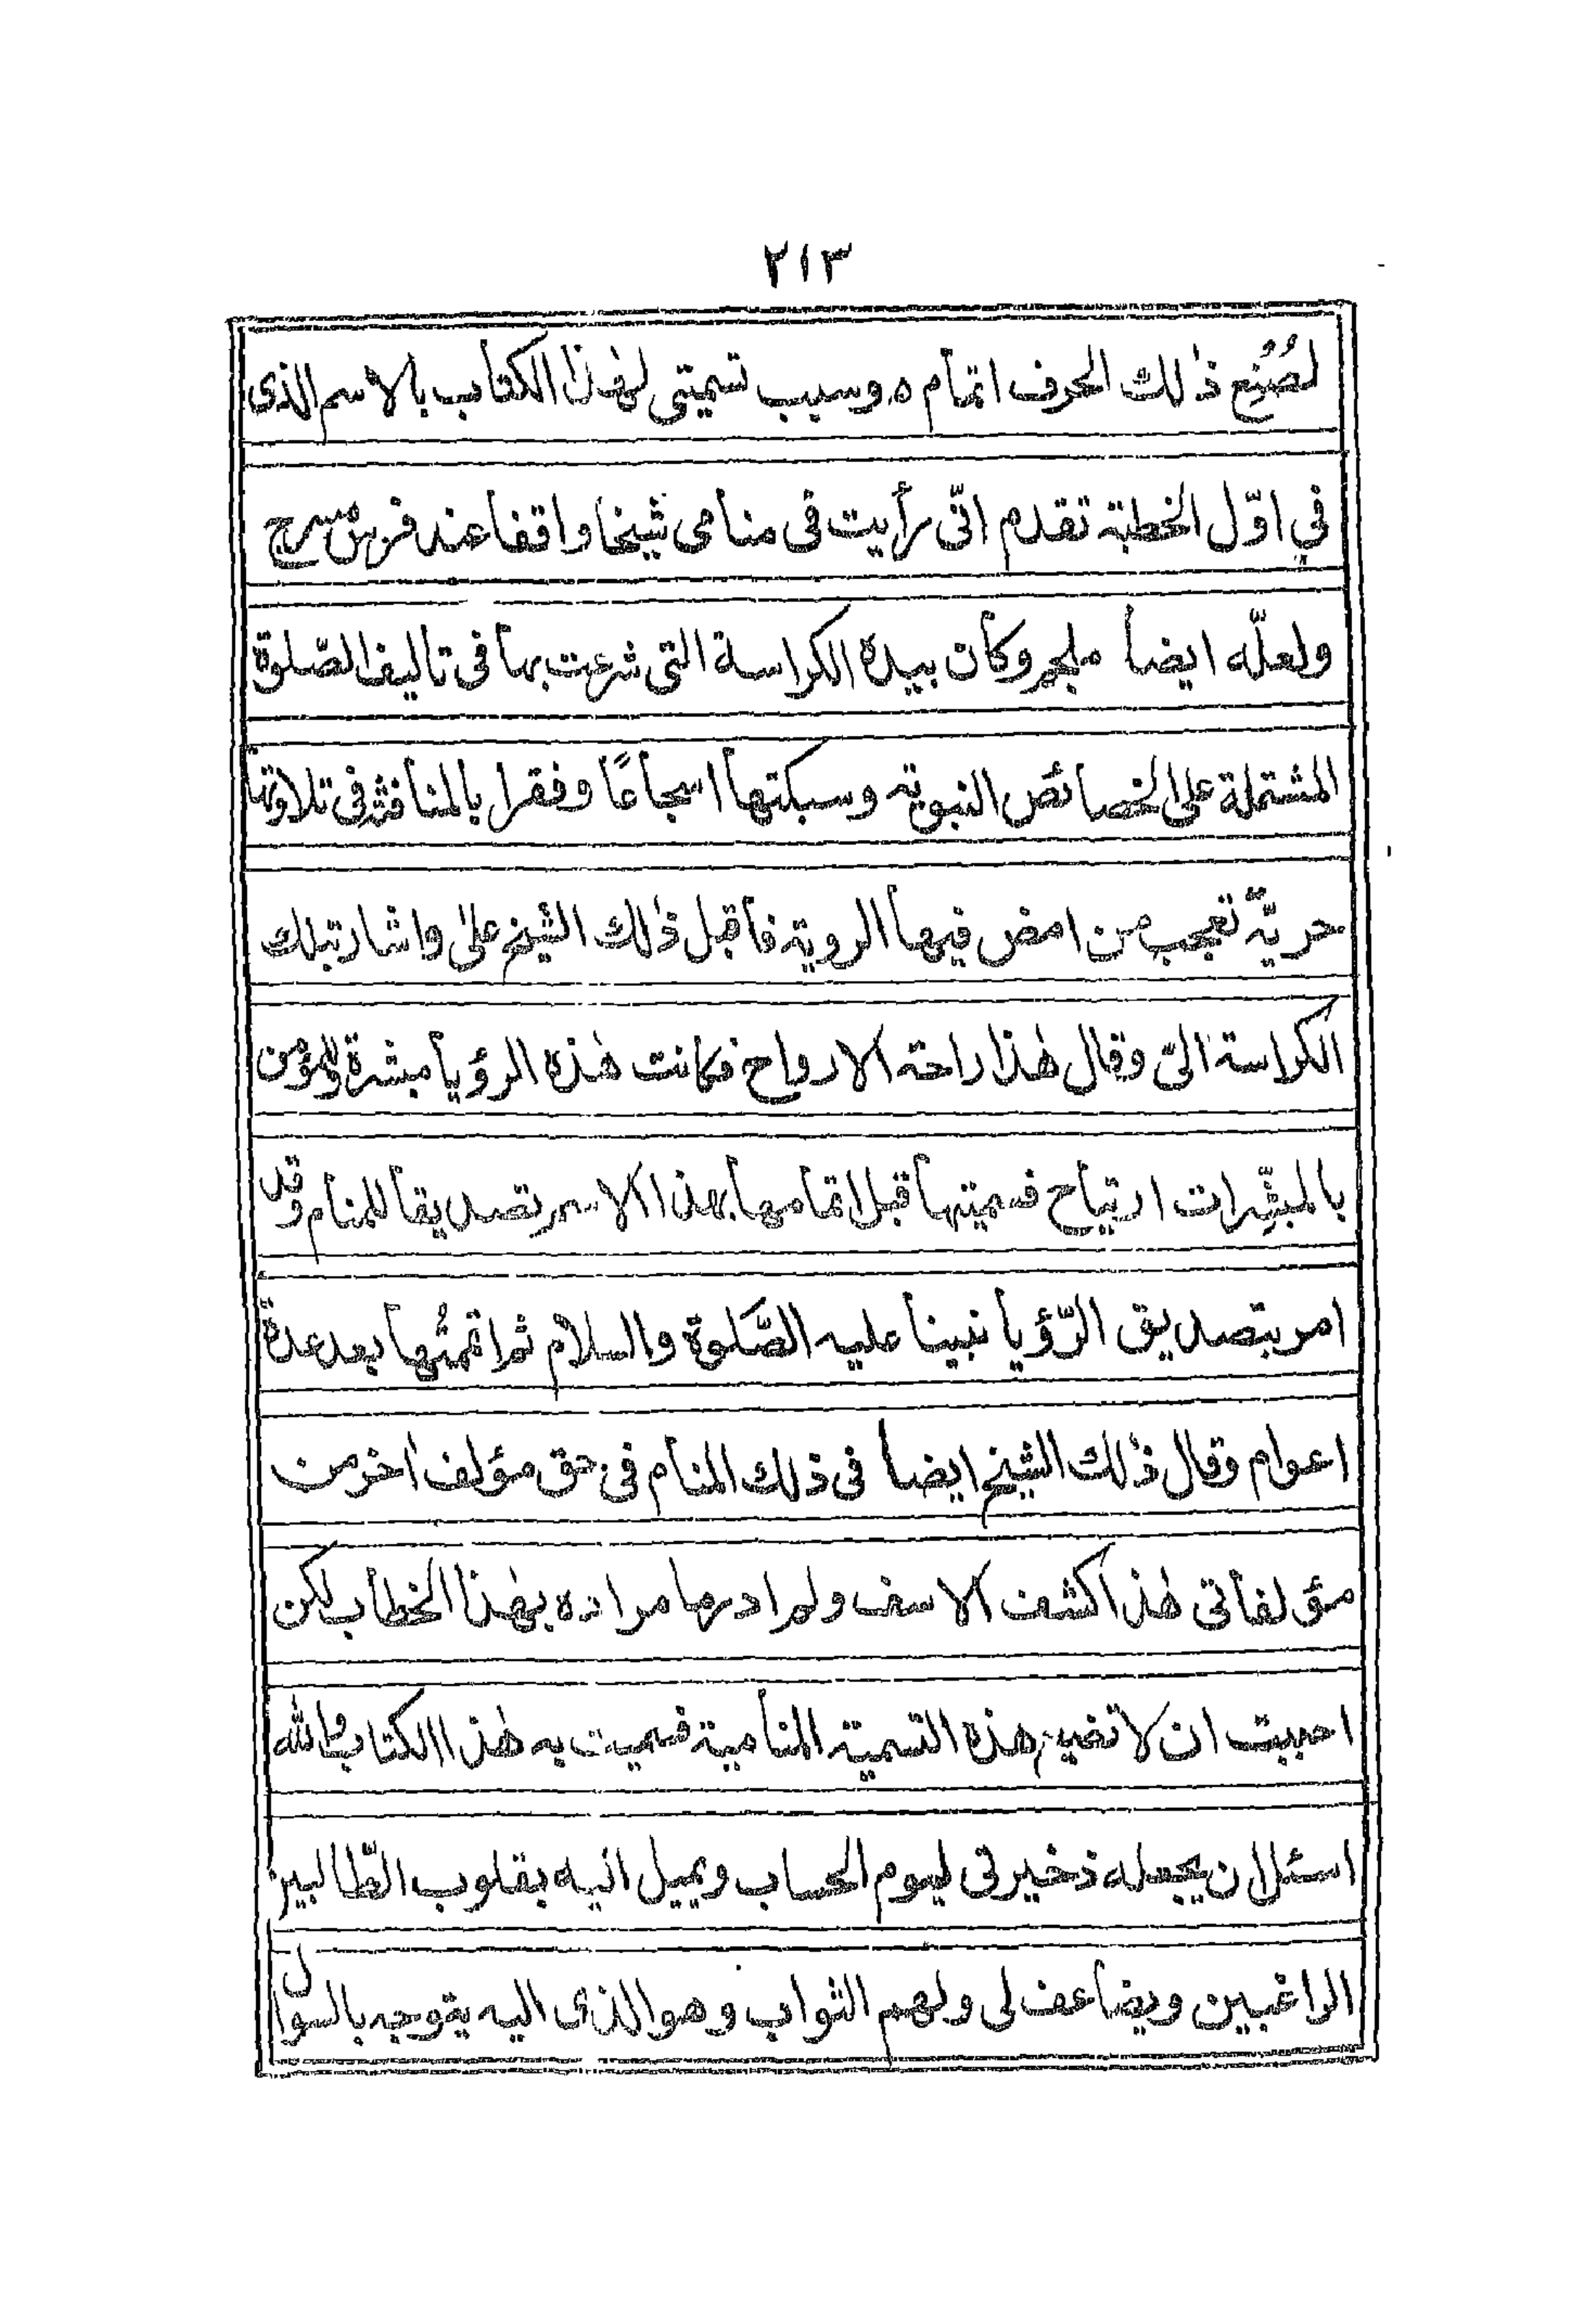 ٢١٣
لصُنِع ذٰلك الحرف اتمام ه وسبب تسميتى لهٰذا الكتاب بالاسم الذى
في اوّل الخطبة تقدم انّى رأيت فى منامى شيخا واقفا عند فرس مسرج
ولعلّه ايضا ملجم وكأن بيده الكراسة التى شرعت بها فى تاليف الصّلوة
المشتملة على الخصائص النبوية وسبكتها اسجاعًا وفقرا بالمنافثة فى تلاوتها
حريّة تعجب من امض فيها الروية فاقبل ذٰلك الشيخ علىٰ واشار بتلك
الكراسة الىّ وقال هٰذا راحة الارواح فكانت هٰذه الرؤيا مبشرة وللمؤمن
بالمبشّرات ارتياح فسميتها قبل اتمامها بهذا الاسم تصديقا للمنام وقد
امر بتصديق الرّؤيا نبينا عليه الصّلوة والسلام ثم اتممتُها بعد عدة
اعوام وقال ذٰلك الشيخ ايضا فى ذلك المنام فى حق مؤلف اٰخر من
مؤلفاتى هٰذا كشف الاسف ولم ادر ما مراده بهٰذا الخطاب لكن
احببت ان لا تغير هذه التسمية المنامية فسميت به هٰذا الكتاب والله
اسئل ان يجعله ذخيرتى ليوم الحساب ويميل اليه بقلوب الطّالبين
الراغبين ويضاعف لى ولهم الثواب وهو الذى اليه يتوجه بالسوال